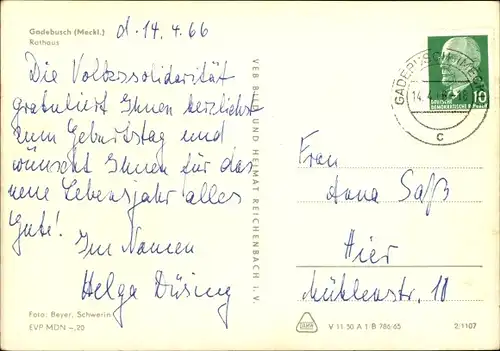 Gadebusch (Meckl.)
Rathaus
d. 14.4.66
Die Volkssolidarität
gratuliert Ihnen herzlichst
zum Geburtstag und
wünscht Ihnen für das
neue Lebensjahr alles
Gute!
Im Namen
Helga Düsing
Foto: Beyer, Schwerin
EVP MDN -,20
VEB BILD UND HEIMAT REICHENBACH i. V.
GADEBUSCH (MECKL)
14.4.66
c
DEUTSCHE
DEMOKRATISCHE REPUBLIK
10
Frau
Anna Saß
Hier
Mühlenstr. 10
V 11 50 A 1 B 786/65
2/1107